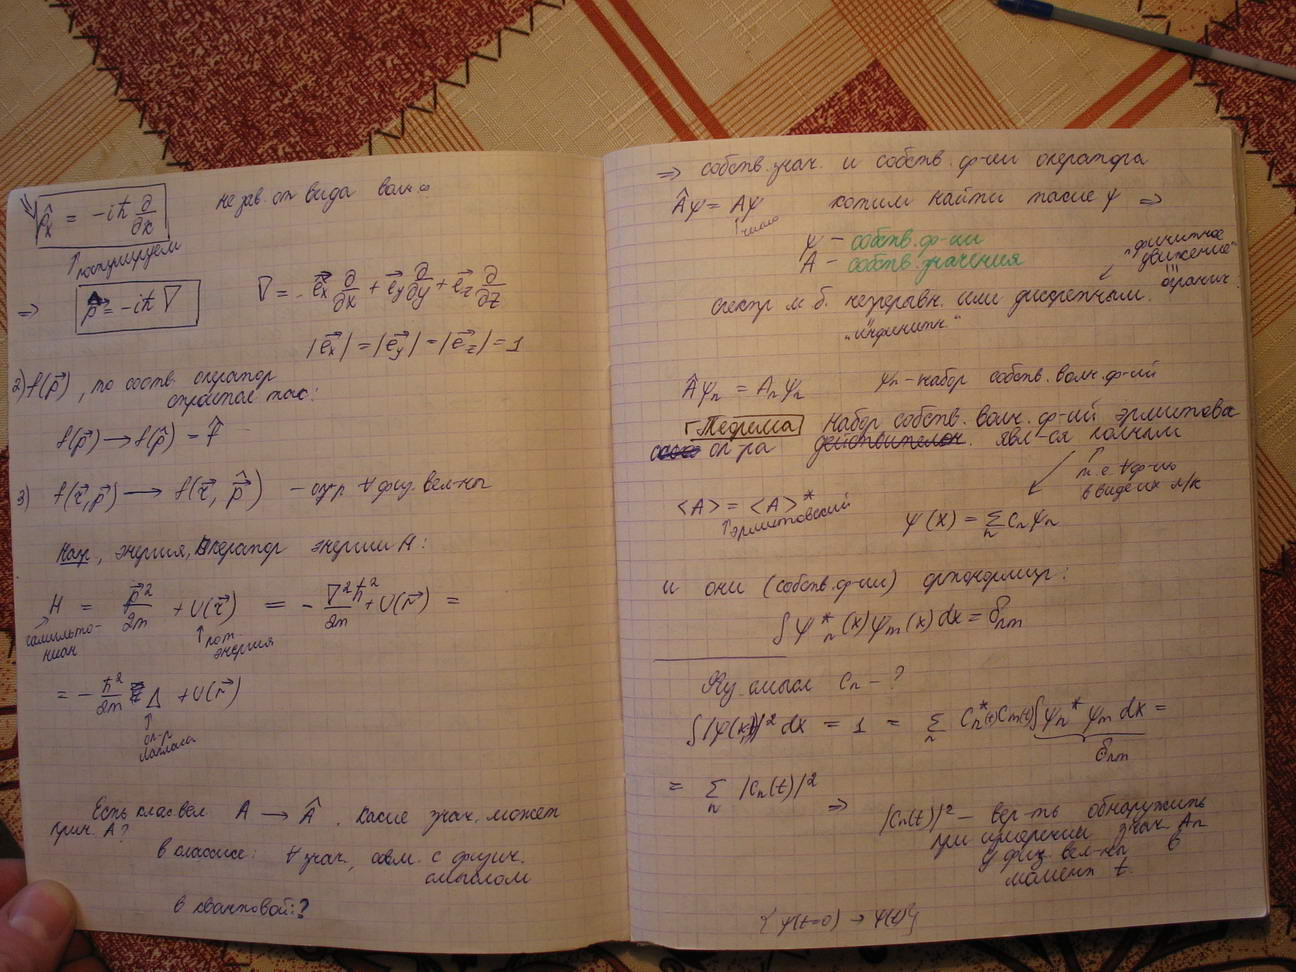 p̂ₓ = -iħ ∂/∂x не зав. от вида волн.
↑ постулируем
⇒ p̂ = -iħ ∇ ∇ = e⃗ₓ ∂/∂x + e⃗y ∂/∂y + e⃗z ∂/∂z
|e⃗ₓ| = |e⃗y| = |e⃗z| = 1
2) f(p⃗), то соотв. оператор
строится так:
f(p⃗) → f(p̂) = f̂
3) f(r⃗, p⃗) → f(r⃗, p̂) – опр ∀ физ. вел-ны
Напр., энергия, Оператор энергии H:
H = p⃗²/2m + U(r⃗) = - ∇²ħ²/2m + U(r⃗) =
гамильто-
ниан
↑ пот.
энергия
= - ħ²/2m Δ + U(r⃗)
↑
оп-р
Лапласа
Есть клас вел A → Â. Какие знач. может
прин. A?
в классике: ∀ знач., совм. с физич.
смыслом
в квантовой: ?
⇒ собств. знач. и собств. ф-ии оператора
Âψ = Aψ хотим найти такие ψ ⇒
↑ число
ψ – собств. ф-ии
A – собств. значения
"финитное
движение"
огранич.
спектр м.б. непрерывн. или дискретным.
"инфинитн."
Âψn = Anψn ψn – набор собств. волн. ф-ий
Теорема Набор собств. волн. ф-ий эрмитова
оп-ра явл-ся полным
т.е. ∀ ф-ию
в виде их л/к
<A> = <A>*
↑ эрмитовский
ψ(x) = Σn cnψn
и они (собств. ф-ии) ортонормир:
∫ψ*n(x)ψm(x)dx = δnm
Физ. смысл cn – ?
∫|ψ(x,t)|²dx = 1 = Σn cn*(t)cm(t)∫ψn*ψm dx =
δnm
= Σn |cn(t)|²
⇒ |cn(t)|² – вер-ть обнаружить
при измерении знач. An
у физ. вел-ны в
момент t.
{ψ(t=0) → ψ(t)}